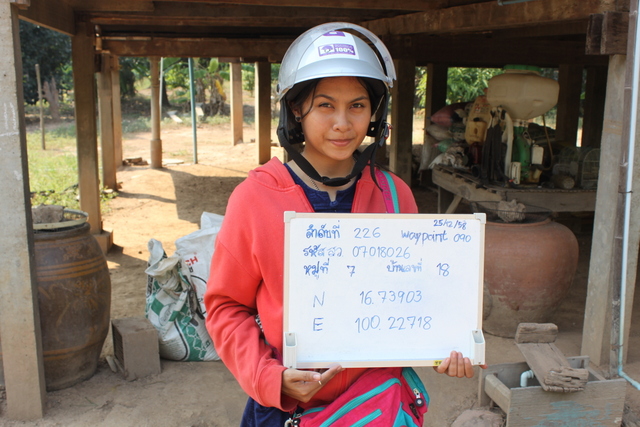 25/12/58
ลำดับที่ 226 waypoint 090
รหัส สว 07018026
หมู่ที่ 7 บ้านเลขที่ 18
N 16.73903
E 100.22718